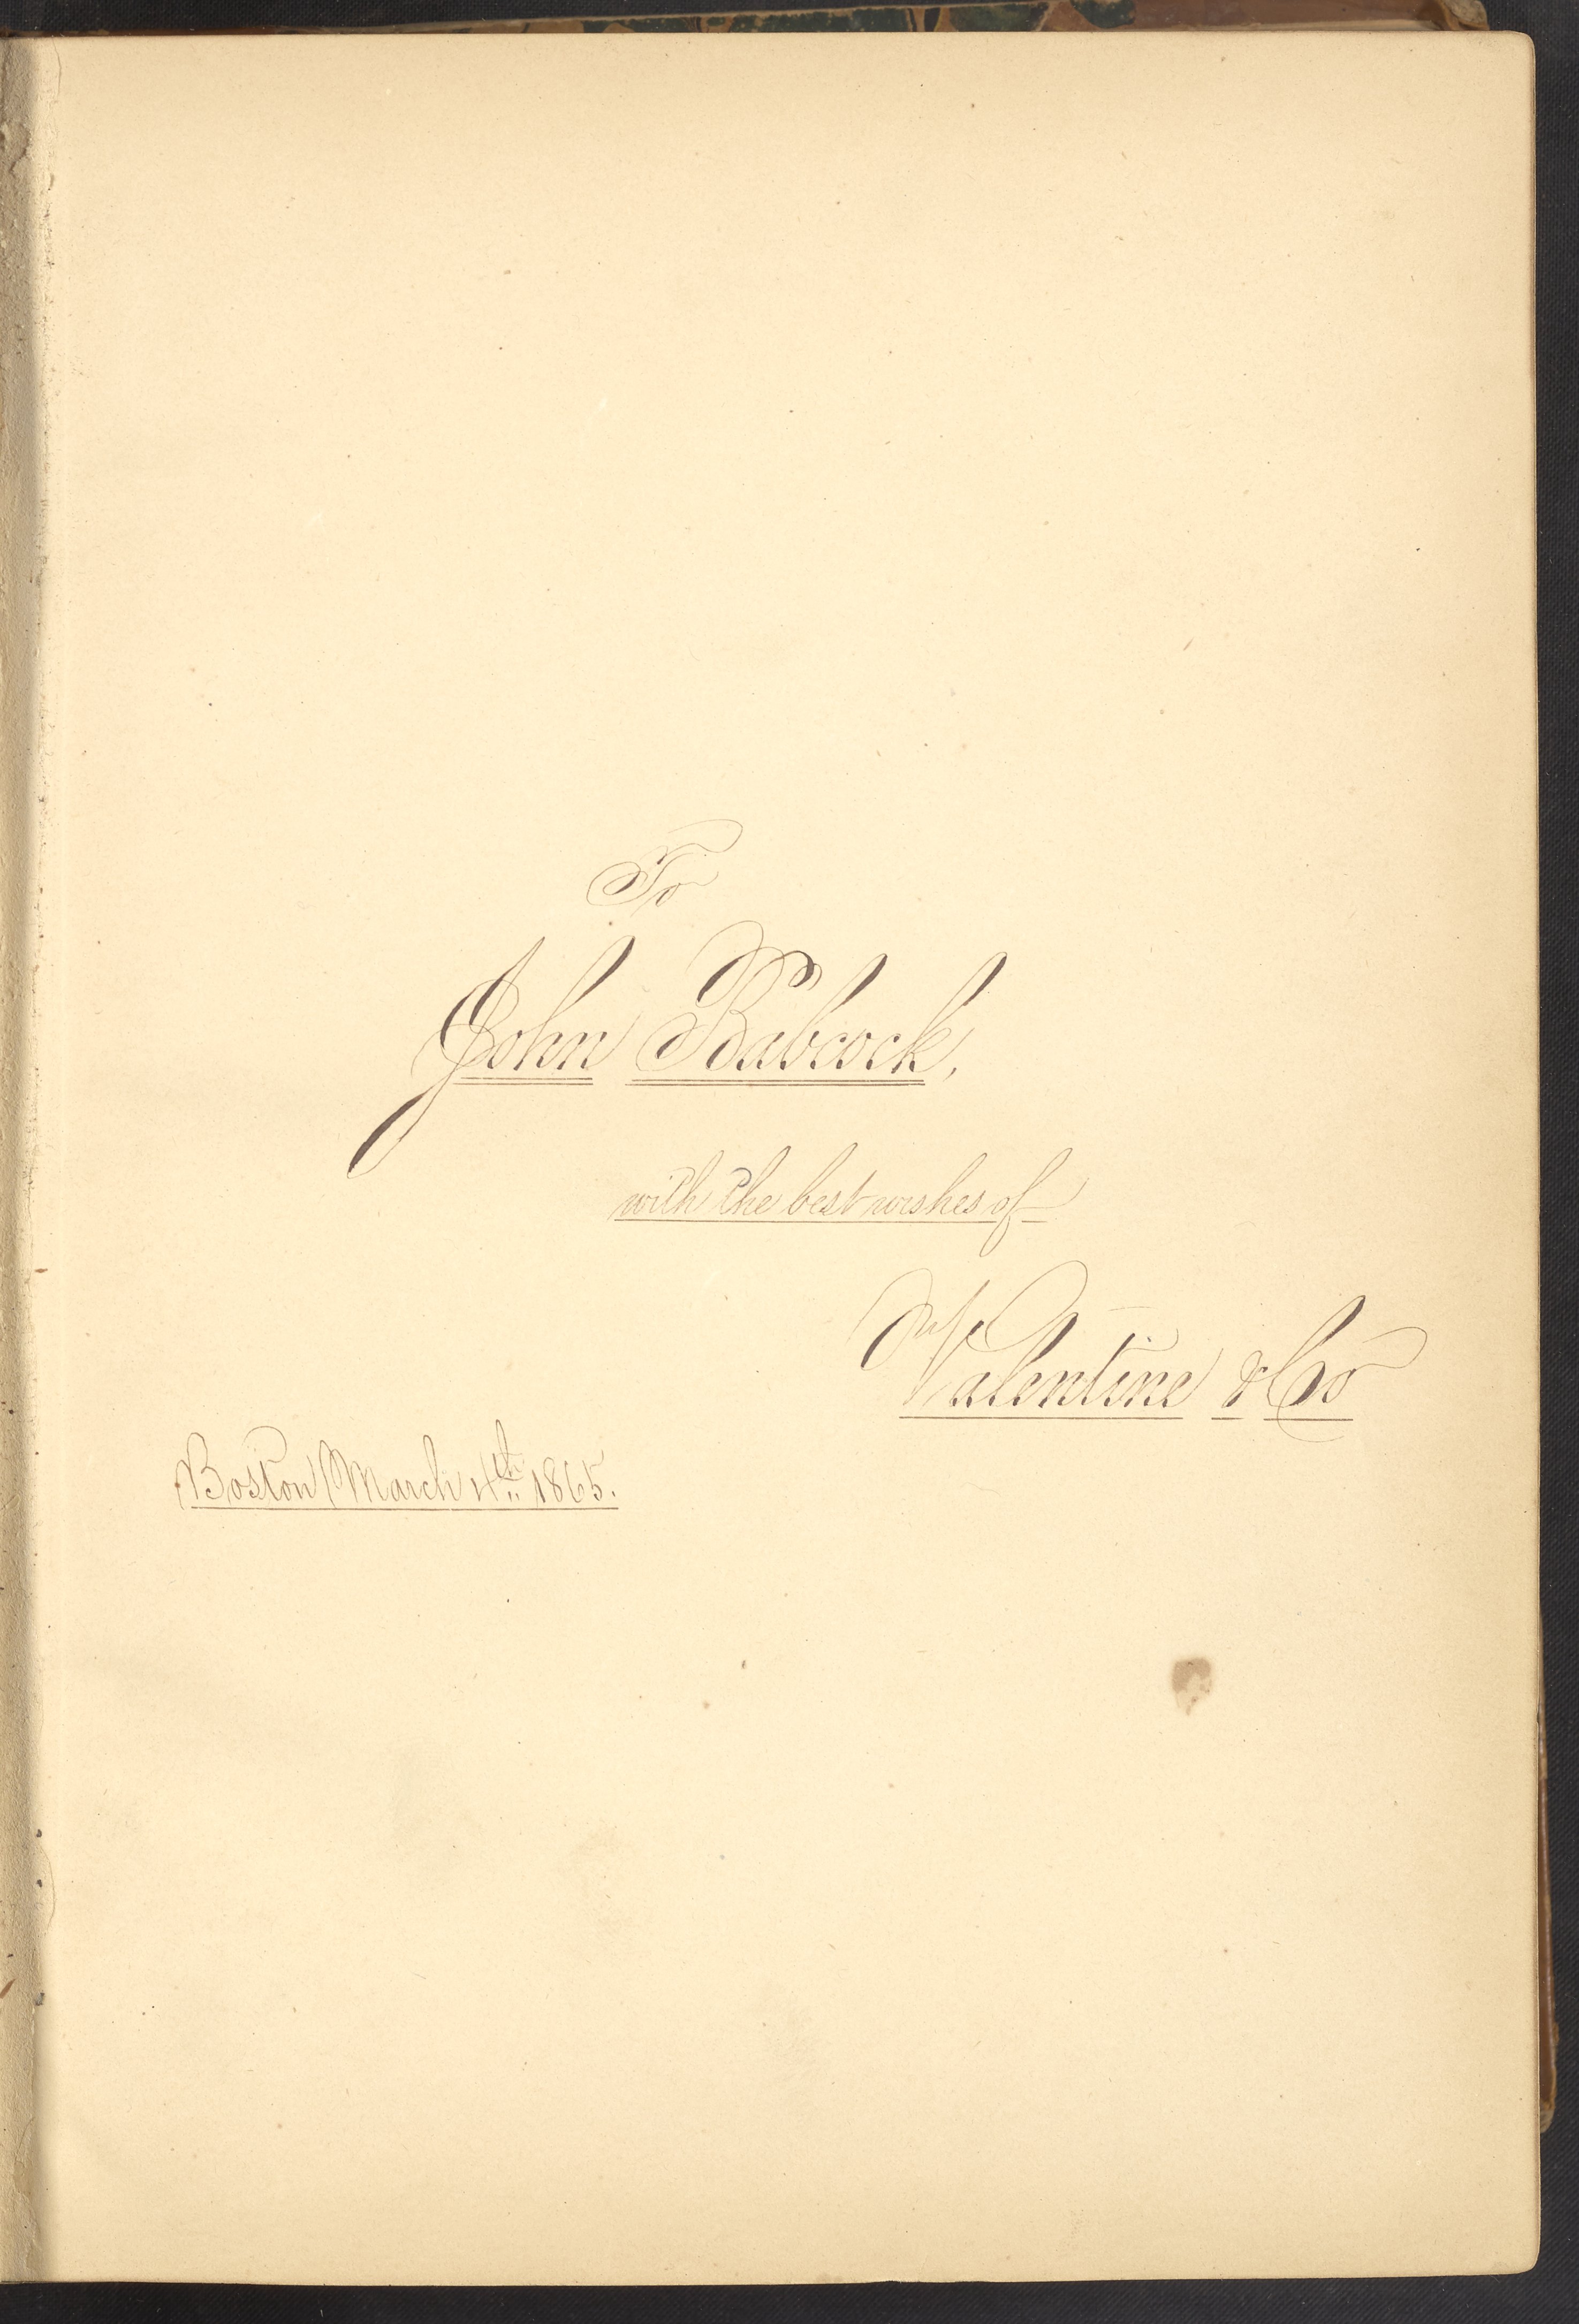 To
John Babcock,
with the best wishes of
Valentine & Co
Boston March 4th 1865.